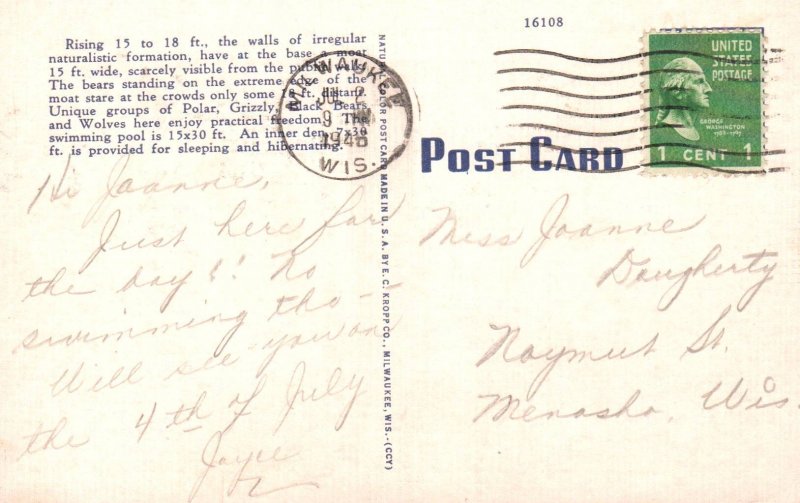 16108
Rising 15 to 18 ft., the walls of irregular
naturalistic formation, have at the base a moat
15 ft. wide, scarcely visible from the public walk.
The bears standing on the extreme edge of the
moat stare at the crowds only some 18 ft. distant.
Unique groups of Polar, Grizzly, Black Bears
and Wolves here enjoy practical freedom. The
swimming pool is 15x30 ft. An inner den, 7x30
ft. is provided for sleeping and hibernating.
MILWAUKEE
2
9
194
WIS.
UNITED
STATES
POSTAGE
GEORGE
WASHINGTON
1 CENT 1
POST CARD
NATURAL COLOR POST CARD MADE IN U. S. A. BY E. C. KROPP CO., MILWAUKEE, WIS.-(CCY)
Hi Joanne,
Just here for
the day! No
swimming tho -
Will see you on
the 4th of July
Joyce
Miss Joanne
Dougherty
Naymut St.
Menasha, Wis.